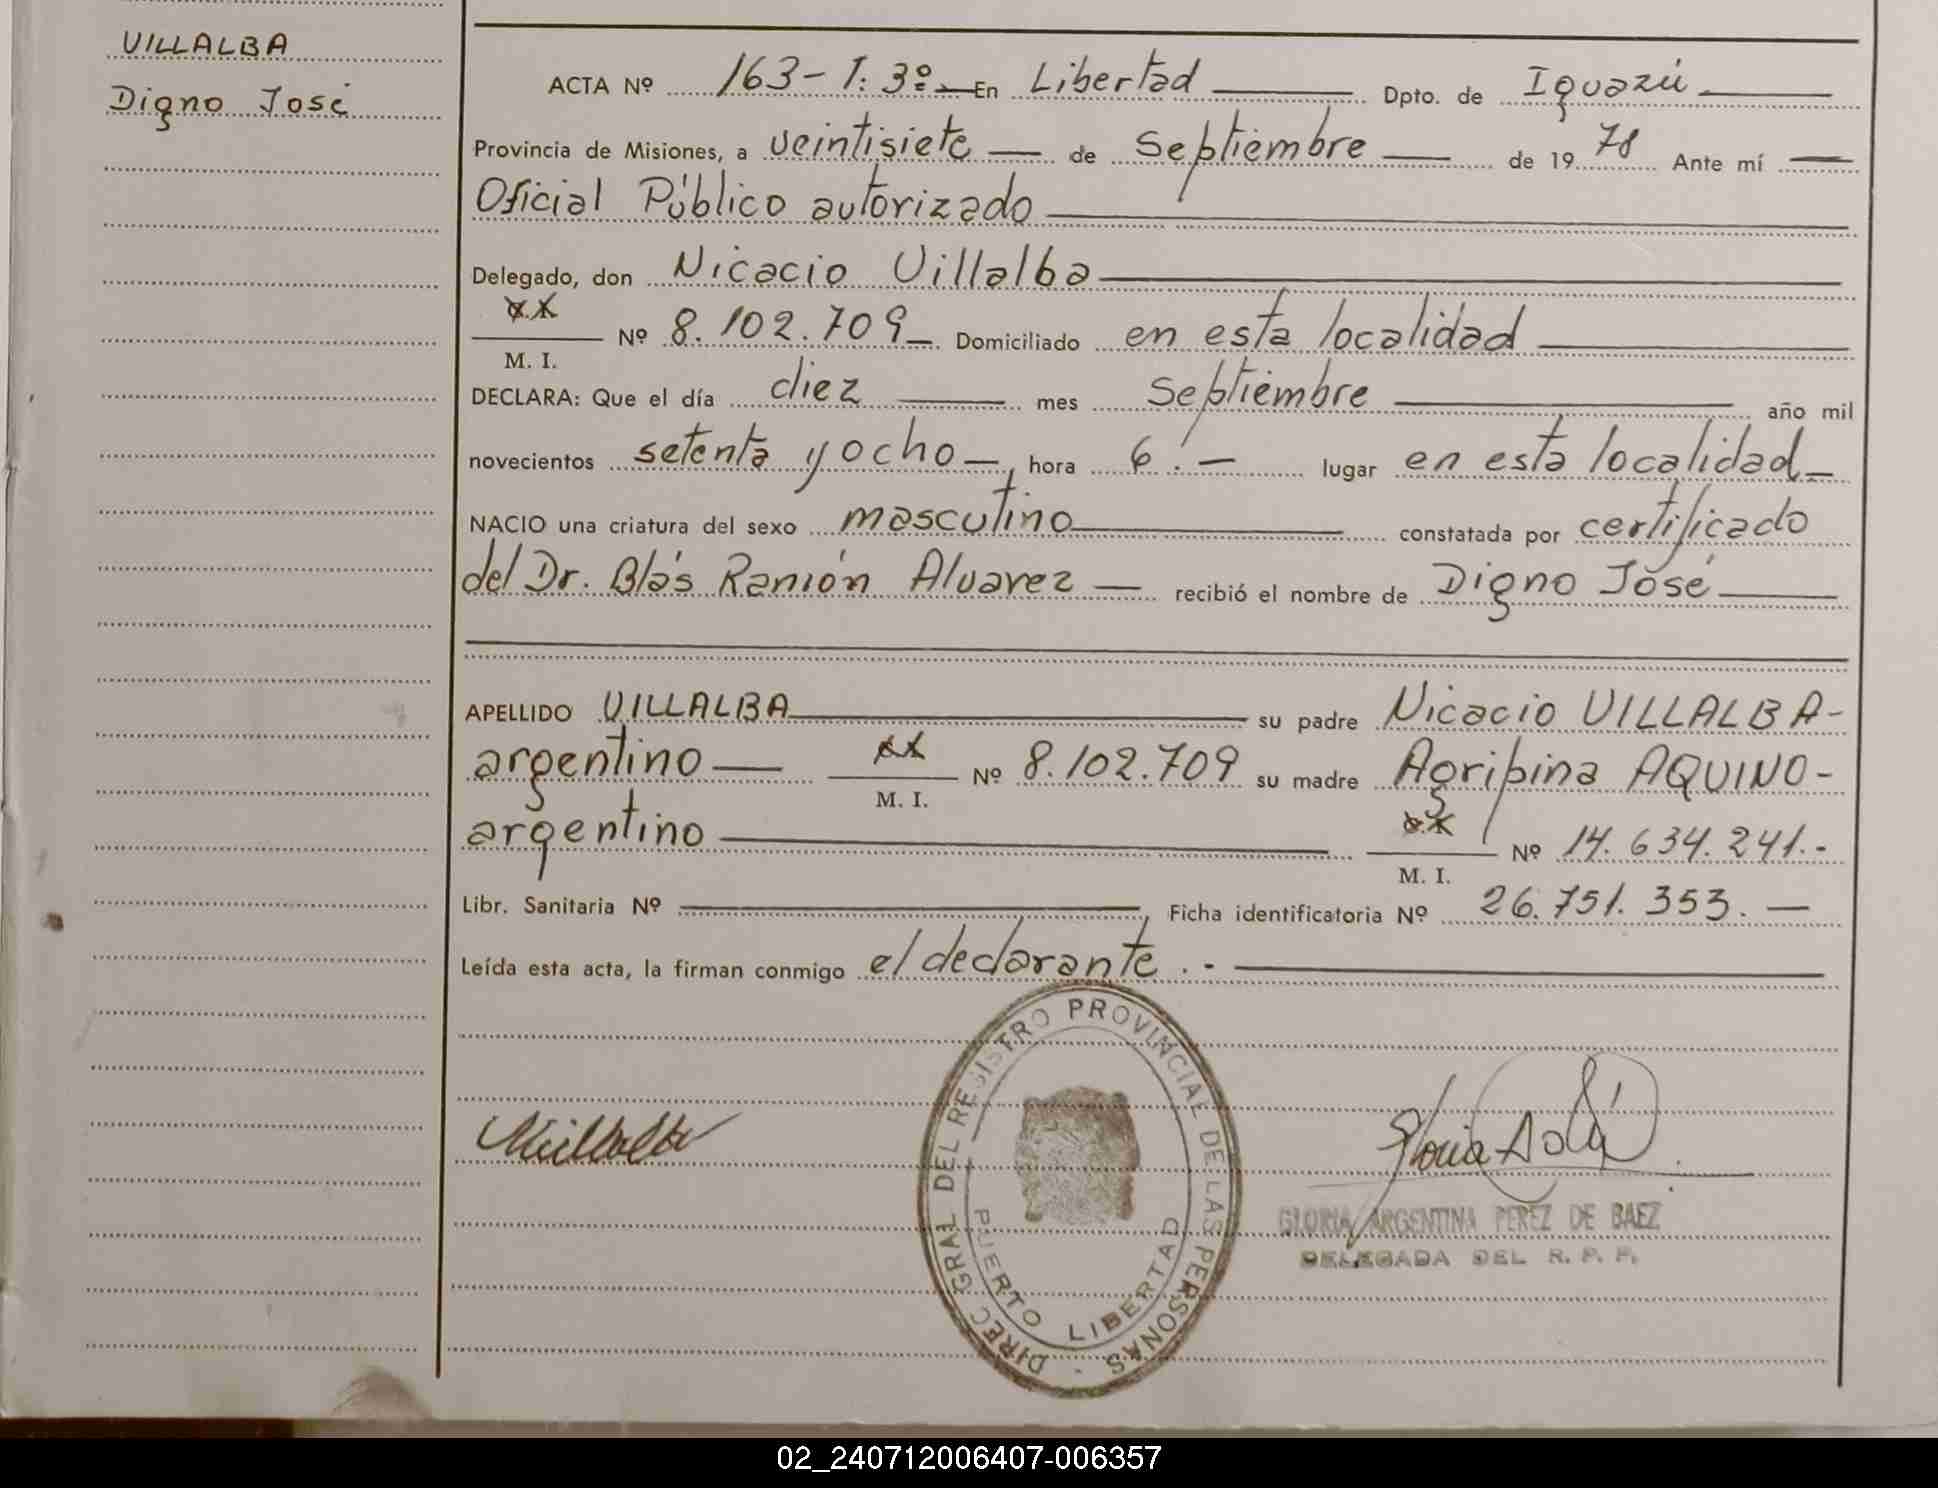 VILLALBA
Digno José
ACTA Nº 163- T: 3º.— En Libertad Dpto. de Iguazú
Provincia de Misiones, a veintisiete — de Septiembre — de 1978 Ante mí —
Oficial Público autorizado
Delegado, don Nicacio Villalba
M. I. Nº 8.102.709— Domiciliado en esta localidad
DECLARA: Que el día diez mes Septiembre año mil
novecientos setenta y ocho —, hora 6.— lugar en esta localidad—
NACIO una criatura del sexo masculino constatada por certificado
del Dr. Blás Ramón Alvarez — recibió el nombre de Digno José
APELLIDO VILLALBA su padre Nicacio VILLALBA-
argentino — M. I. Nº 8.102.709 su madre Agripina AQUINO-
argentino M. I. Nº 14.634.241.-
Libr. Sanitaria Nº Ficha identificatoria Nº 26.751.353.—
Leída esta acta, la firman conmigo el declarante.-
DIREC GRAL DEL REGISTRO PROVINCIAL DE LAS PERSONAS
PUERTO LIBERTAD
GLORIA ARGENTINA PEREZ DE BAEZ
DELEGADA DEL R. P. P.
02_240712006407-006357